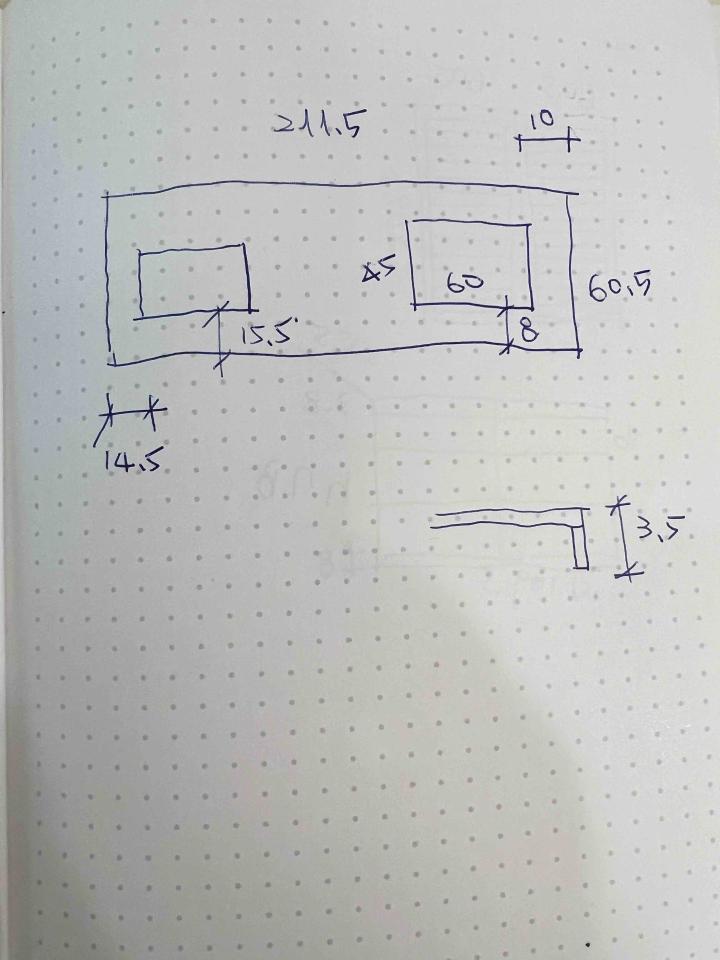 211.5
10
45
60
60.5
15.5
8
14.5
3.5